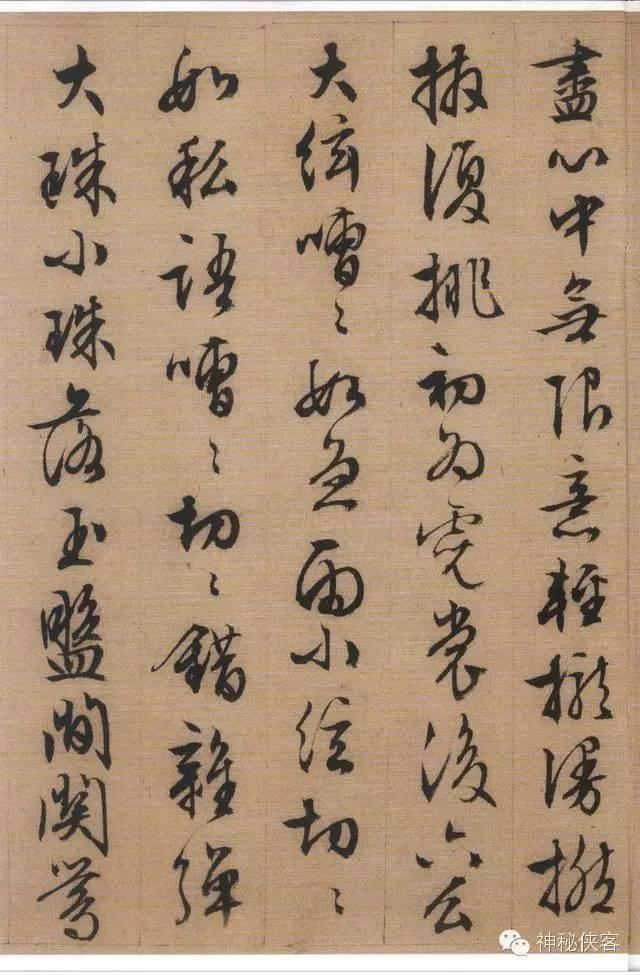 盡心中無限意輕攏漫撚
抹復挑初為霓裳後六么
大絃嘈〻如急雨小絃切〻
如私語嘈〻切〻錯雜彈
大珠小珠落玉盤間關鶯
神秘侠客